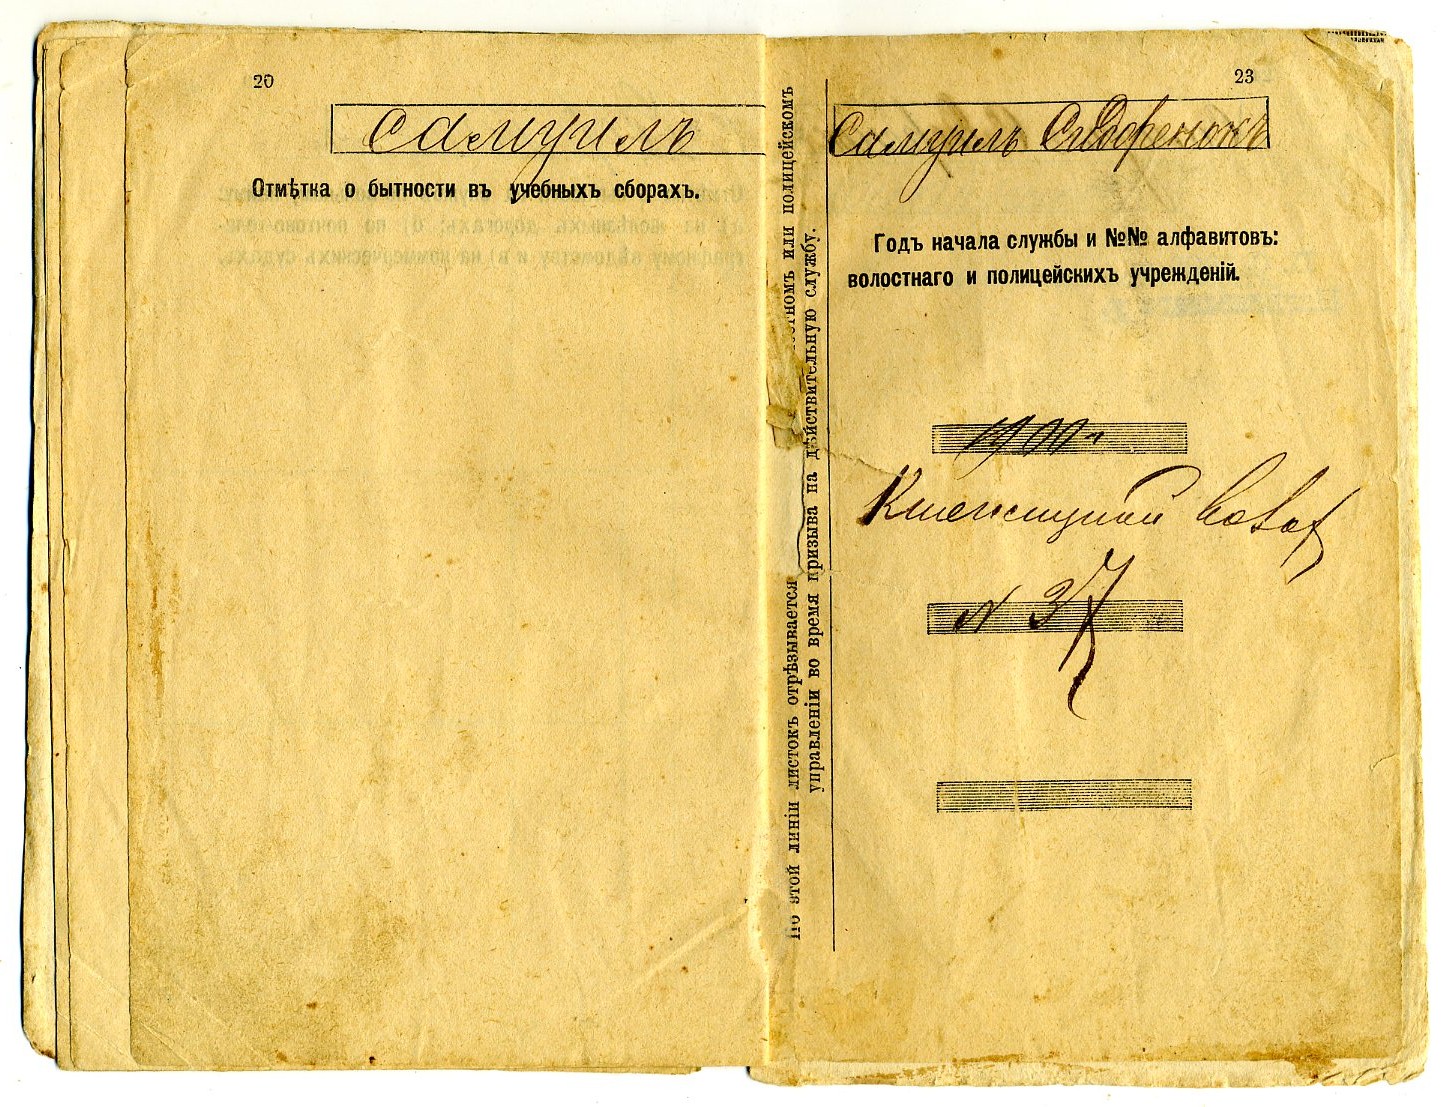 20
Самуилъ
Отмѣтка о бытности въ учебныхъ сборахъ.
По этой линіи листокъ отрѣзывается стномъ или полицейскомъ
управленіи во время призыва на дѣйствительную службу.
23
Самуилъ Сидоренокъ
Годъ начала службы и №№ алфавитовъ:
волостнаго и полицейскихъ учрежденій.
1900 г
N 37